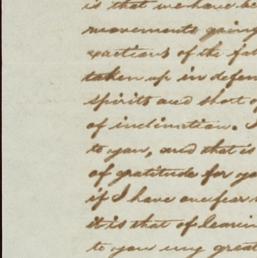 is that we have be
movements going
exactions of the fat
taken up in defen
spirits and short of
of inclination. I
to you, and that is
of gratitude for yo
if I have one fear
it is that of leavin
to you my great